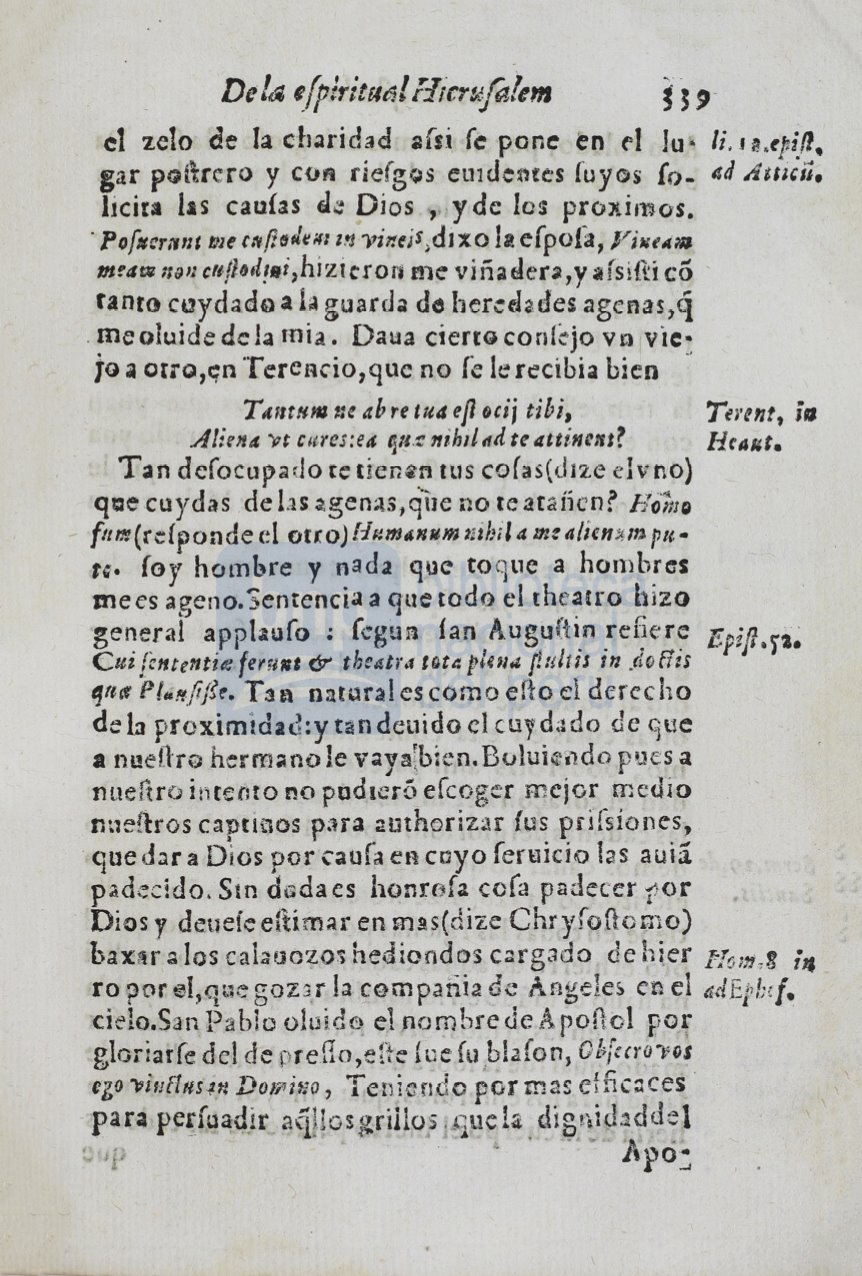 De la eſpiritual Hieruſalem 339
el zelo de la charidad aſsi ſe pone en el lu-
gar poſtrero y con rieſgos euidentes ſuyos ſo-
licita las cauſas de Dios , y de los proximos.
Poſuerunt me cuſtodem in vineis, dixo la eſpoſa, Vineam
meam non cuſtodiui, hizieron me viñadera, y aſsiſti cõ
tanto cuydado a la guarda de heredades agenas, q̃
me oluide de la mia. Daua cierto conſejo vn vie-
jo a otro, en Terencio, que no ſe le recibia bien
Tantum ne ab re tua eſt ocij tibi,
Aliena vt cures: ea quæ nihil ad te attinent?
Tan deſocupado te tienen tus coſas (dize el vno)
que cuydas de las agenas, que no te atañen? Homo
ſum (reſponde el otro) Humanum nihil a me alienum pu-
to. ſoy hombre y nada que toque a hombres
me es ageno. Sentencia a que todo el theatro hizo
general applauſo : ſegun ſan Auguſtin refiere
Cui ſententiæ ferunt & theatra tota plena ſtultis in doctis
que Plauſiſſe. Tan natural es como eſto el derecho
de la proximidad: y tan deuido el cuydado de que
a nueſtro hermano le vaya bien. Boluiendo pues a
nueſtro intento no pudierõ eſcoger mejor medio
nueſtros captiuos para authorizar ſus priſsiones,
que dar a Dios por cauſa en cuyo ſeruicio las auiã
padecido. Sin duda es honroſa coſa padecer por
Dios y deueſe eſtimar en mas (dize Chryſoſtomo)
baxar a los calauozos hediondos cargado de hier
ro por el, que gozar la compañia de Angeles en el
cielo. San Pablo oluido el nombre de Apoſtol por
gloriarſe del de preſſo, eſte fue ſu blaſon, Obſecro vos
ego vinctus in Domino, Teniendo por mas efficaces
para perſuadir aq̃llos grillos que la dignidad del
Apo-
li. 12. epiſt,
ad Atticũ.
Terent, in
Heaut.
Epiſt. 52.
Hom. 8 in
ad Epheſ.